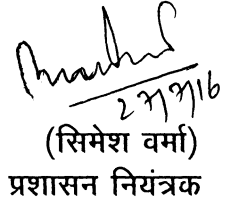 27/7/16
(सिमेश वर्मा)
प्रशासन नियंत्रक